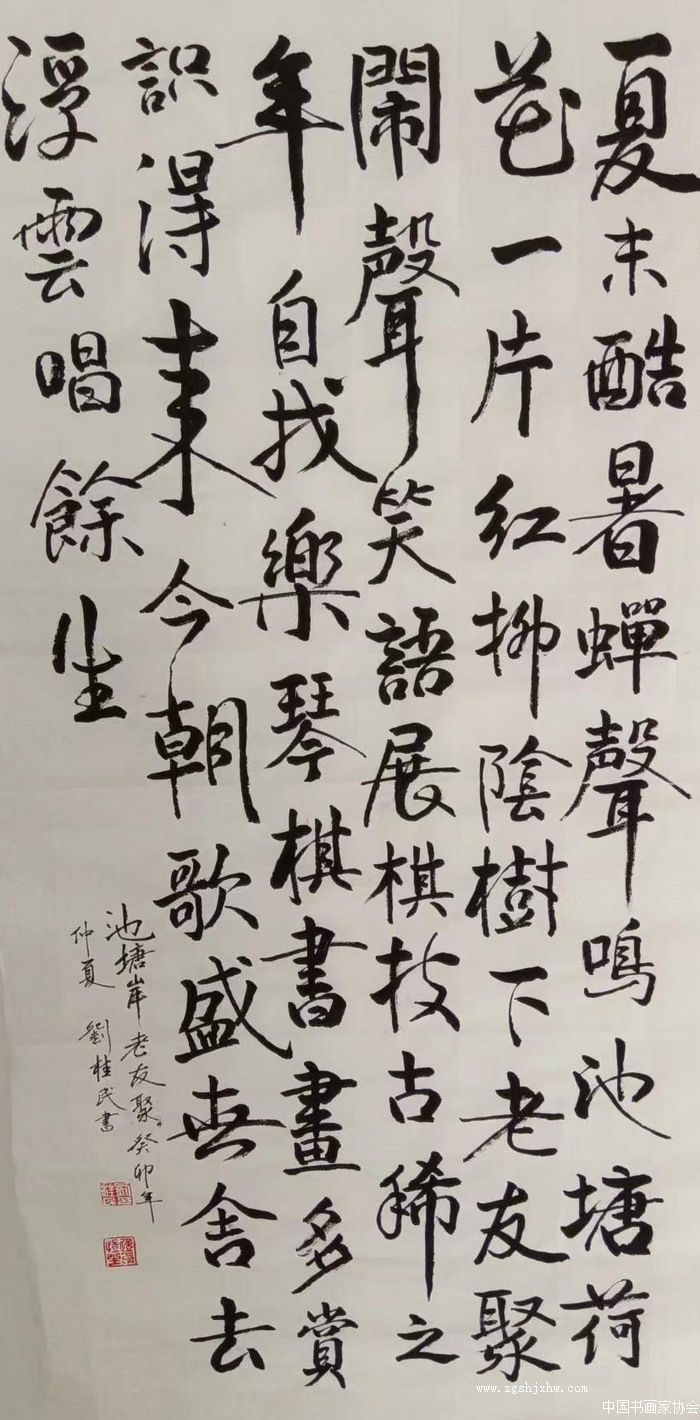 夏末酷暑蟬聲鳴池塘荷
花一片红柳陰樹下老友聚
鬧聲笑語展棋技古稀之
年自找樂琴棋書畫多賞
識得来今朝歌盛世舍去
浮雲唱餘生
池塘岸老友聚。癸卯年
仲夏 劉桂民書
www.zgshjxhw.com
中国书画家协会